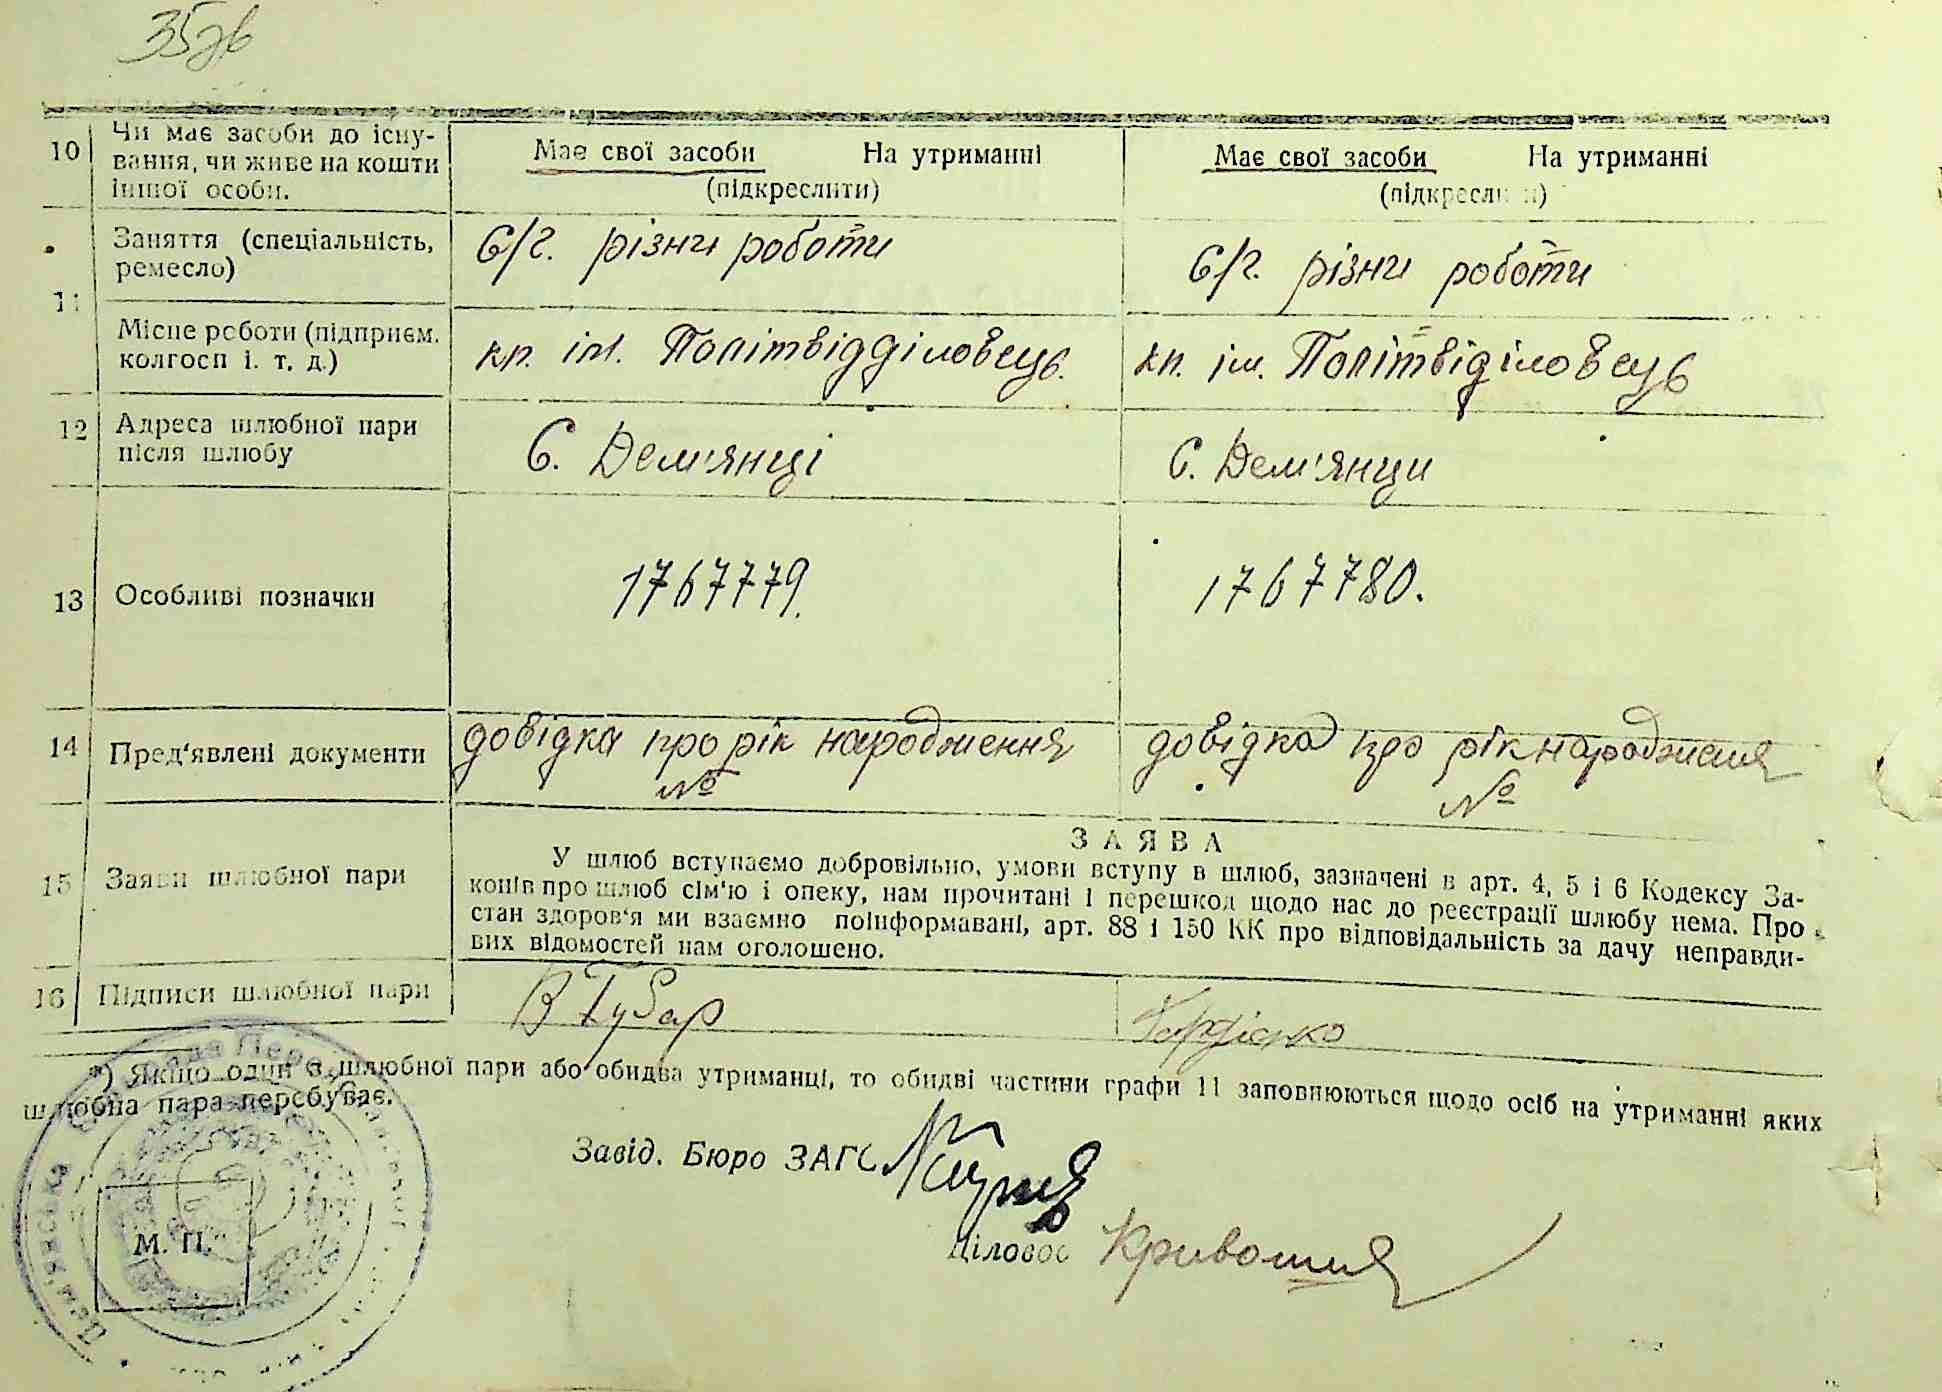 35
10 Чи має засоби до існу-
вання, чи живе на кошти
іншої особи.
Має свої засоби На утриманні
(підкреслити)
Має свої засоби На утриманні
(підкреслити)
11 Заняття (спеціальність,
ремесло)
С/г. різни роботи
С/г. різни роботи
Місце роботи (підприєм.
колгосп і. т. д.)
кп. ім. Політвідділовець.
кп. ім. Політвіділовець
12 Адреса шлюбної пари
після шлюбу
С. Дем'янці
С. Дем'янци
13 Особливі позначки
1767779.
1767780.
14 Пред'явлені документи
довідка про рік народження
№
довідка про рік народження
№
15 Заяви шлюбної пари
ЗАЯВА
У шлюб вступаємо добровільно, умови вступу в шлюб, зазначені в арт. 4, 5 і 6 Кодексу За-
конів про шлюб сім'ю і опеку, нам прочитані і перешкод щодо нас до реєстрації шлюбу нема. Про
стан здоров'я ми взаємно поінформавані, арт. 88 і 150 КК про відповідальність за дачу неправди-
вих відомостей нам оголошено.
16 Підписи шлюбної пари
В Губар
Гордієнко
*) Якщо один з шлюбної пари або обидва утриманці, то обидві частини графи 11 заповнюються щодо осіб на утриманні яких
шлюбна пара перебуває.
Завід. Бюро ЗАГС
Діловод Кривошия
М. П.